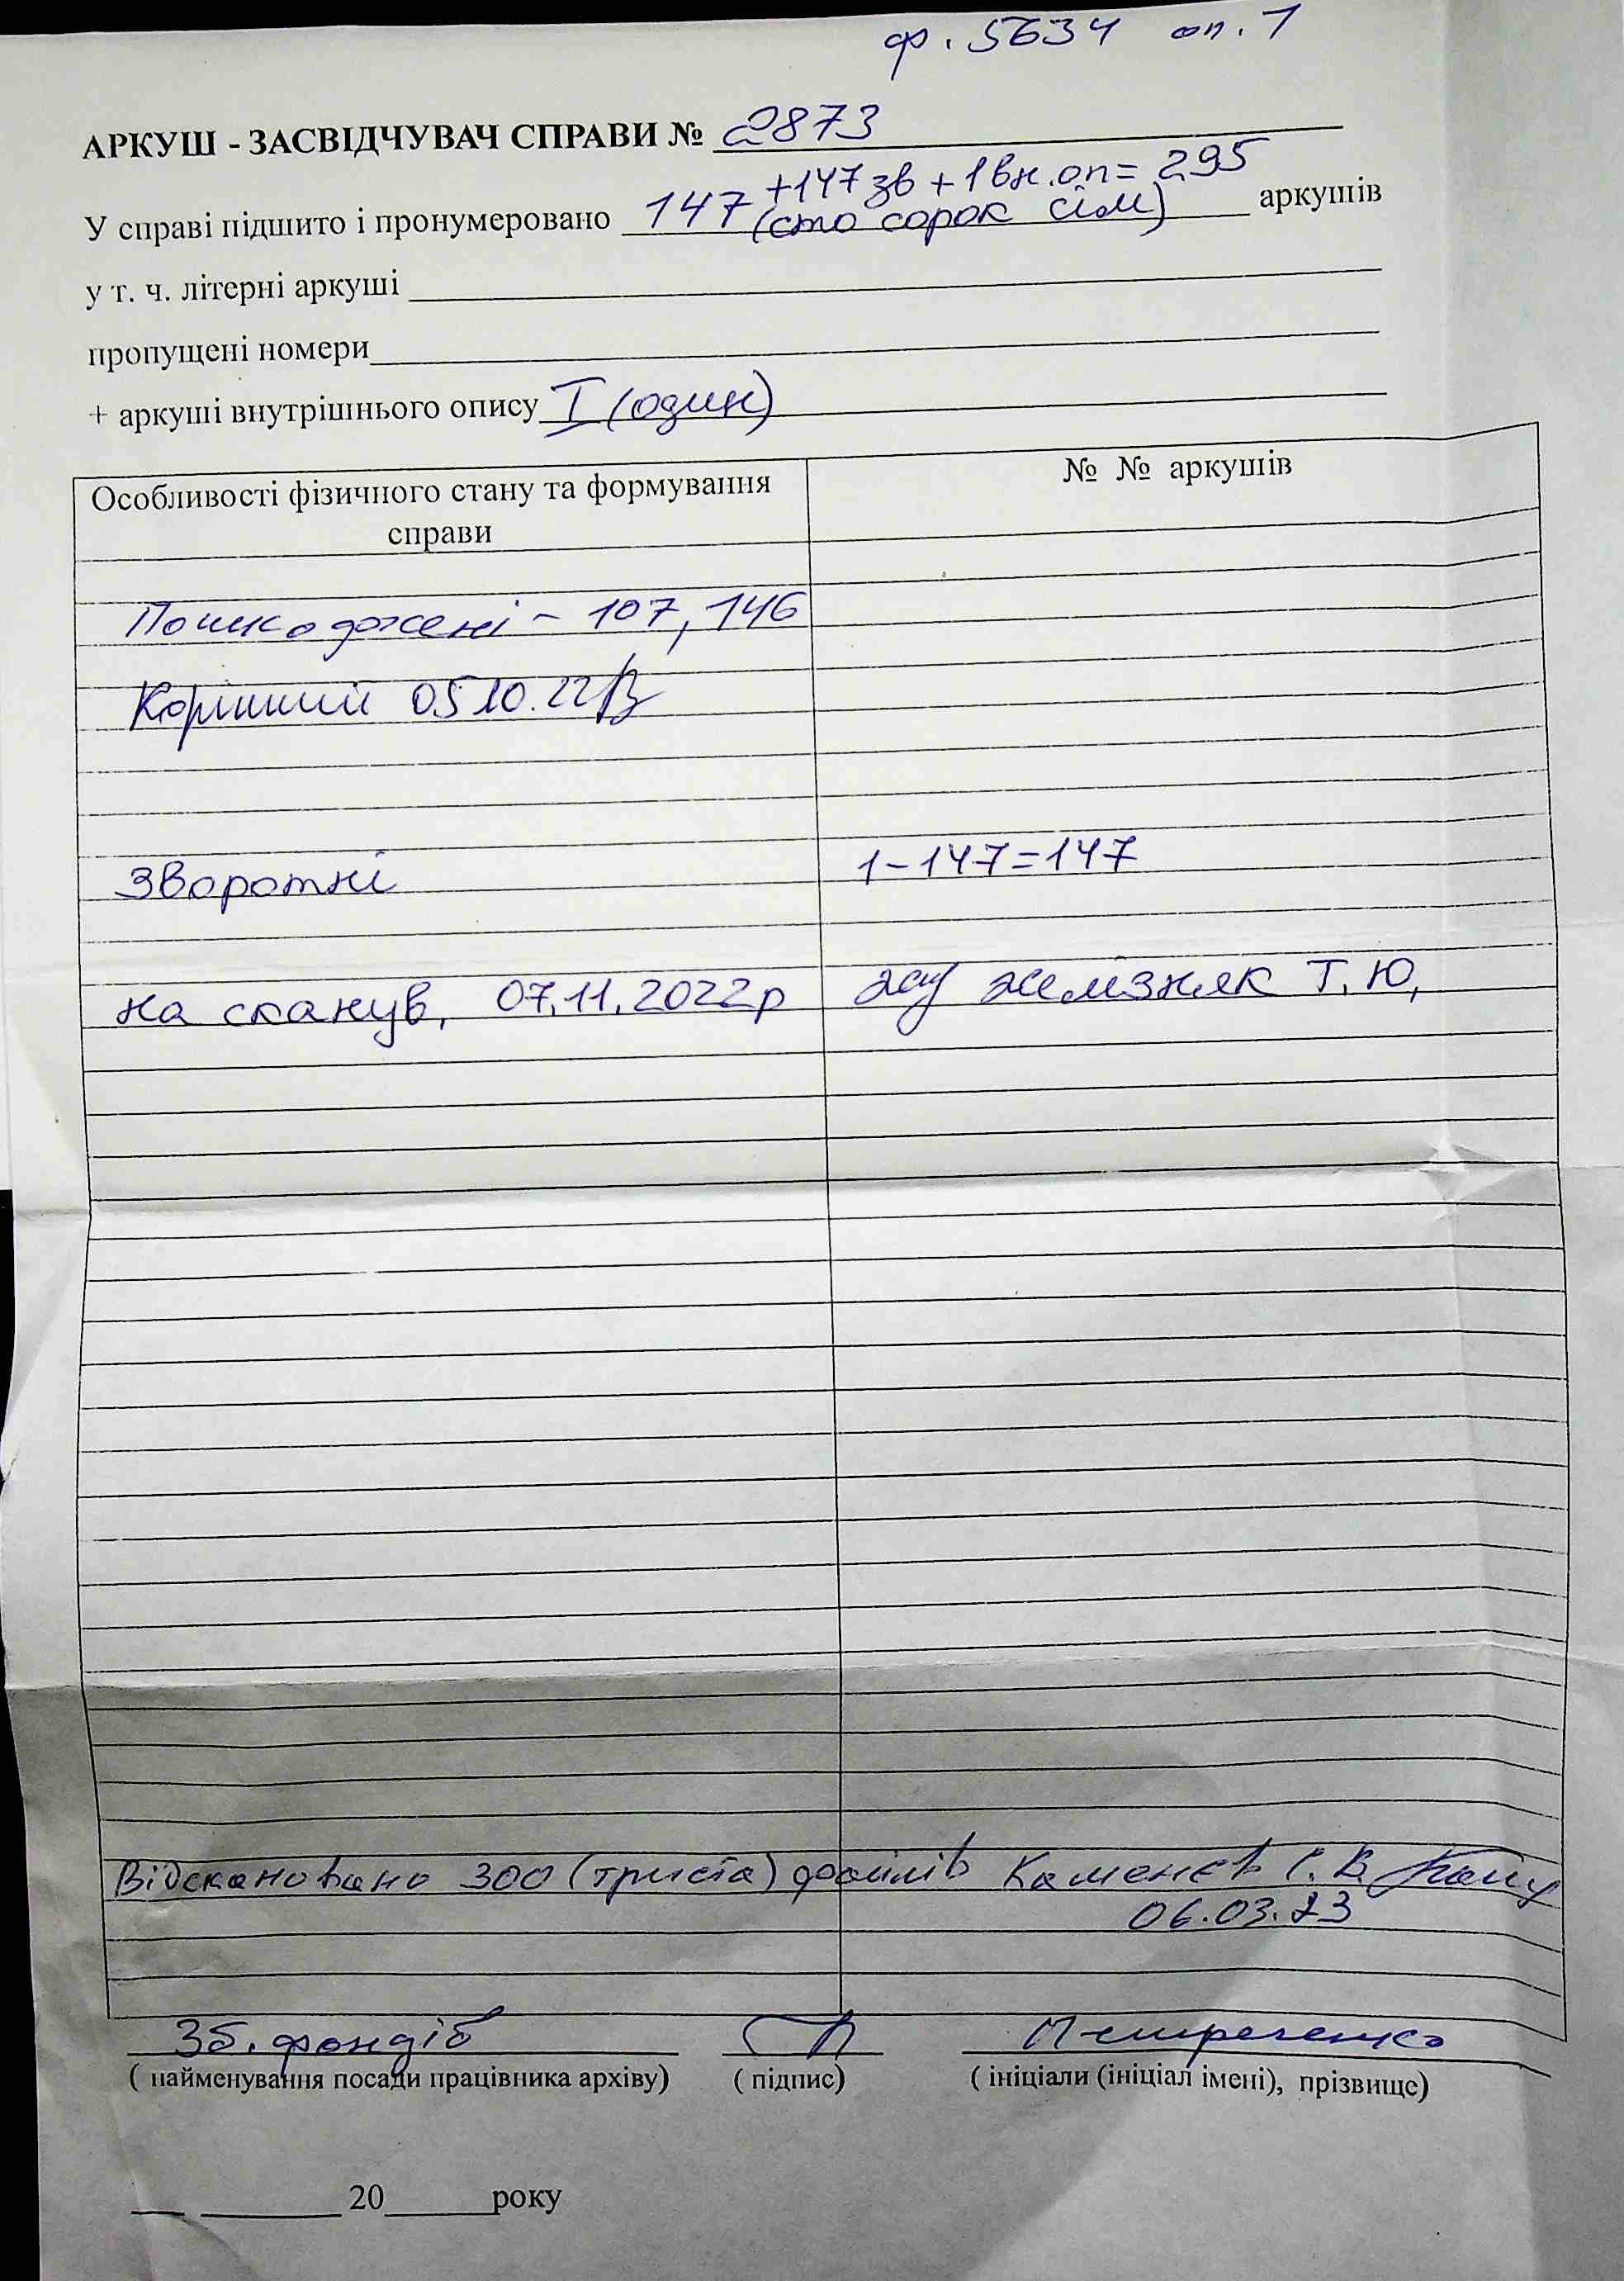 ф. 5634 оп. 1
АРКУШ - ЗАСВІДЧУВАЧ СПРАВИ № 2873
+147 зв + 1 вн. оп = 295
У справі підшито і пронумеровано 147 (сто сорок сім) аркушів
у т. ч. літерні аркуші
пропущені номери
+ аркуші внутрішнього опису I (один)
Особливості фізичного стану та формування № № аркушів
справи
Пошкоджені – 107, 146
05.10.22
Зворотні 1–147=147
на сканув, 07.11.2022р Желізняк Т. Ю,
Відскановано 300 (триста) файлів Каменєв С. В.
06.03.23
Зб. фондів
( найменування посади працівника архіву) ( підпис) ( ініціали (ініціал імені), прізвище)
20 року